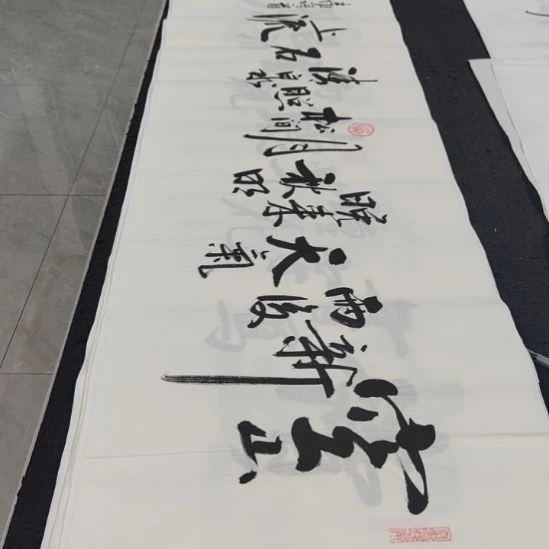 空山
新
雨後
天氣
晚来
秋明
月
松間
照
清泉
石
上流